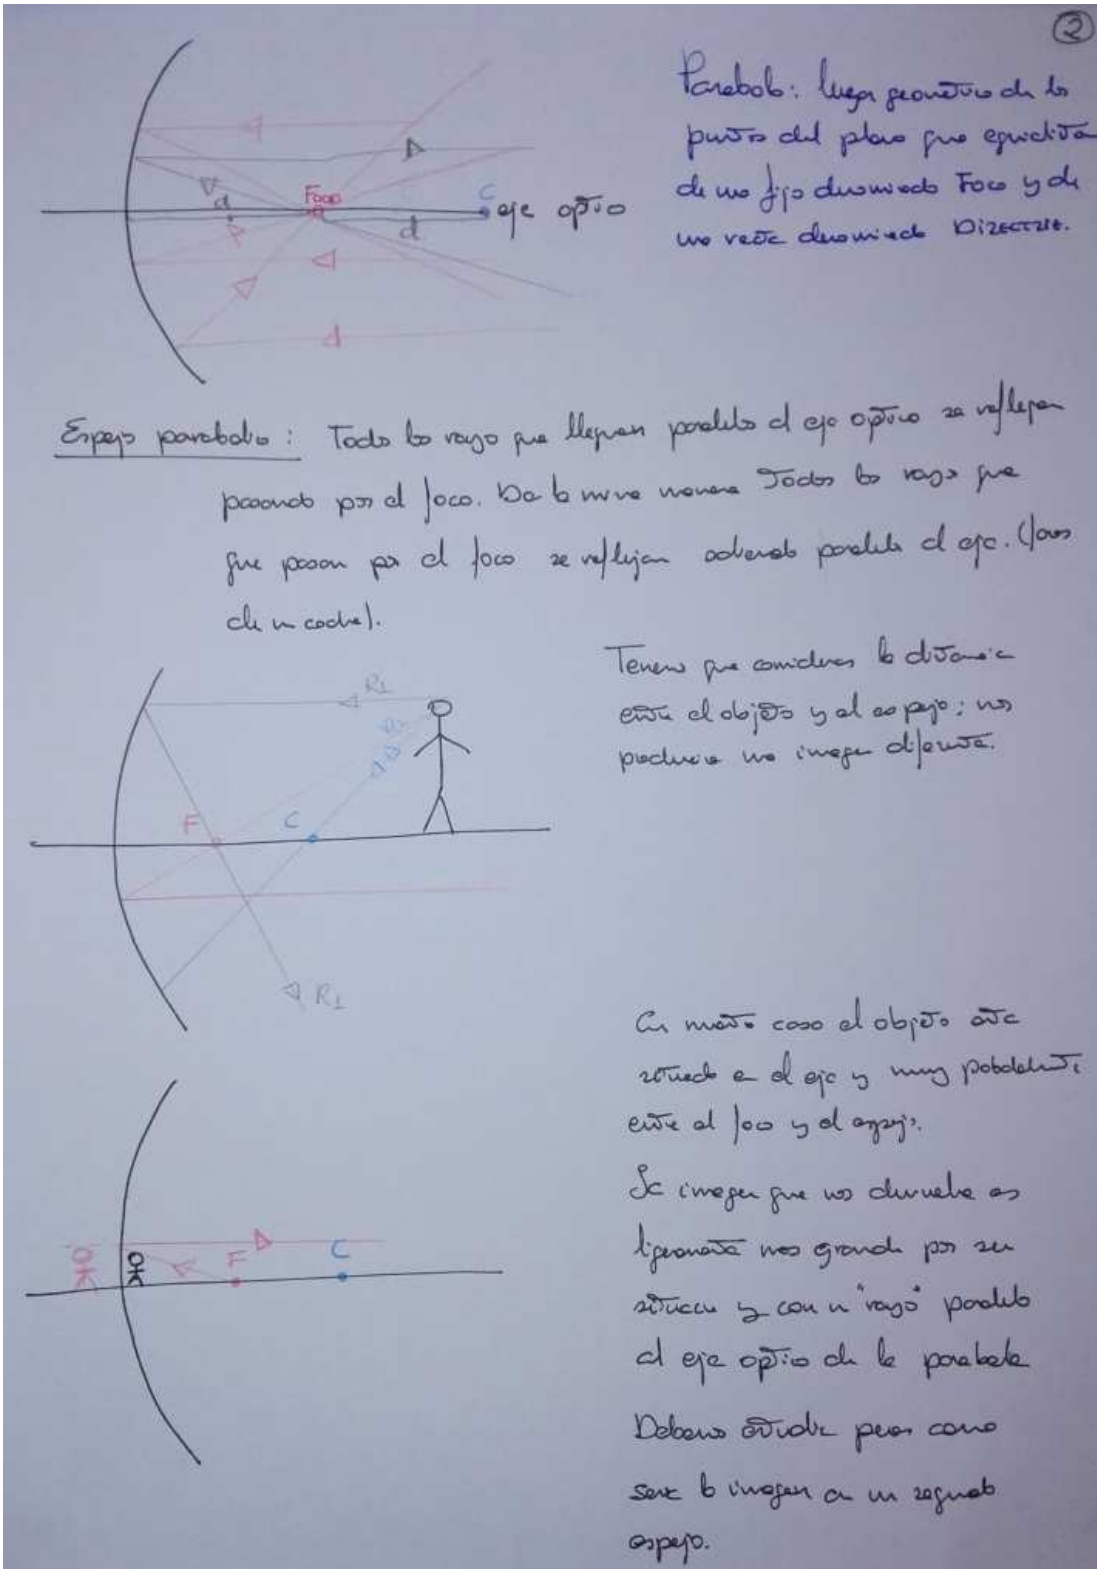 2
Parabola: lugar geometrico de los
puntos del plano que equidista
de uno fijo denominado Foco y de
una recta denominada DIRECTRIZ.
Foco
C
eje optico
d
d
Espejo parabolico: Todos los rayos que llegan paralelos al eje optico se reflejan
pasando por el foco. De la misma manera Todos los rayos que
que pasan por el foco se reflejan saliendo paralelo al eje. (faros
de un coche).
Tenemos que considerar la distancia
entre el objeto y el espejo; nos
producira una imagen diferente.
R1
F
C
R1
En nuestro caso el objeto esta
situado en el eje y muy
entre el foco y el espejo.
La imagen que nos devuelve es
ligeramente mas grande por su
situacion y con un "rayo" paralelo
al eje optico de la parabola
Debemos estudiar como
sera la imagen en un segundo
espejo.
F
C